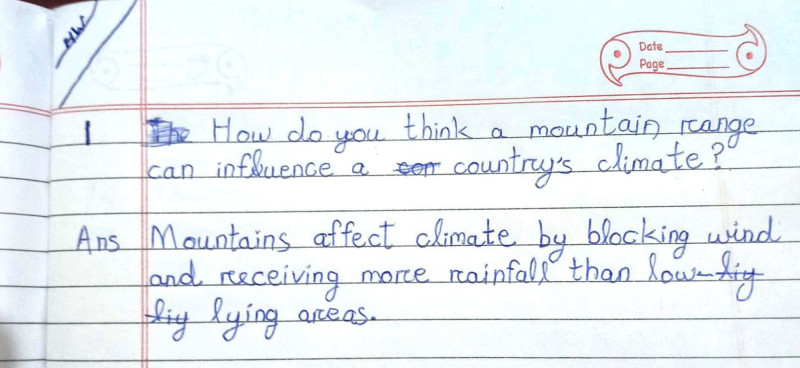 H/W
Date
Page
1 The How do you think a mountain range
can influence a con country's climate?
Ans Mountains affect climate by blocking wind
and receiving more rainfall than low-liy
liy lying areas.